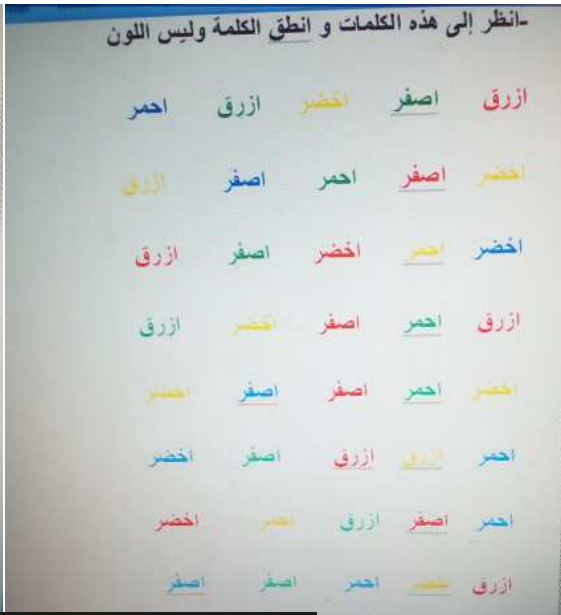 -انظر إلى هذه الكلمات و انطق الكلمة وليس اللون
ازرق اصفر اخضر ازرق احمر
اخضر اصفر احمر اصفر ازرق
اخضر احمر اخضر اصفر ازرق
ازرق احمر اصفر اخضر ازرق
اخضر احمر اصفر اصفر اخضر
احمر ازرق ازرق اصفر اخضر
احمر اصفر ازرق احمر اخضر
ازرق اخضر احمر اصفر اصفر